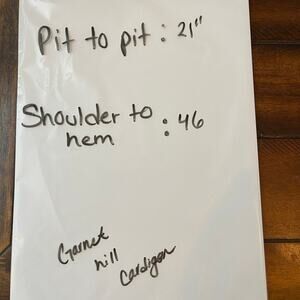 Pit to pit : 21"
Shoulder to
hem : 46
Garnet
hill
Cardigan